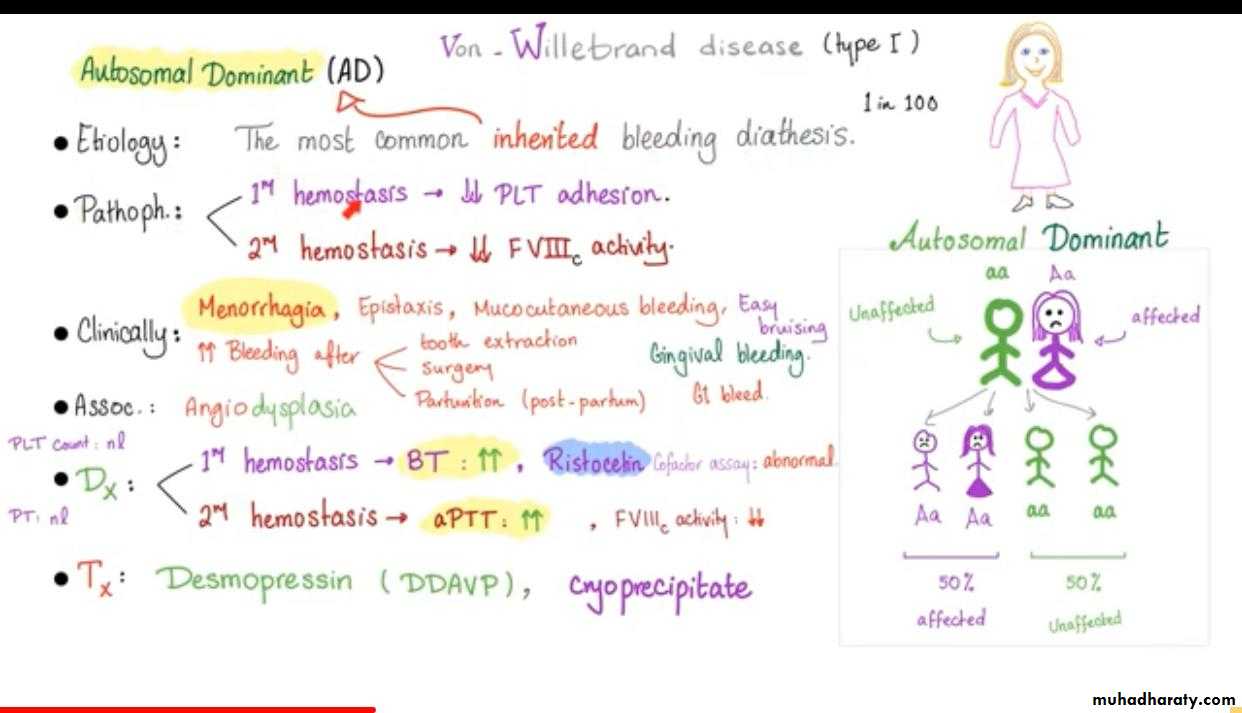 Von - Willebrand disease (type I)
Autosomal Dominant (AD)
1 in 100
• Etiology: The most common inherited bleeding diathesis.
• Pathoph.:
1ry hemostasis → ↓↓ PLT adhesion.
2ry hemostasis → ↓↓ FVIIIc activity.
• Clinically:
Menorrhagia, Epistaxis, Mucocutaneous bleeding, Easy bruising
↑↑ Bleeding after
tooth extraction
surgery
Parturition (post-partum)
Gingival bleeding.
GI bleed.
• Assoc.: Angiodysplasia
PLT count: nl
• Dx:
PT: nl
1ry hemostasis → BT: ↑↑, Ristocetin Cofactor assay: abnormal.
2ry hemostasis → aPTT: ↑↑, FVIIIc activity: ↓↓
• Tx: Desmopressin (DDAVP), cryoprecipitate
Autosomal Dominant
aa Aa
Unaffected affected
Aa Aa aa aa
50% 50%
affected Unaffected
muhadharaty.com